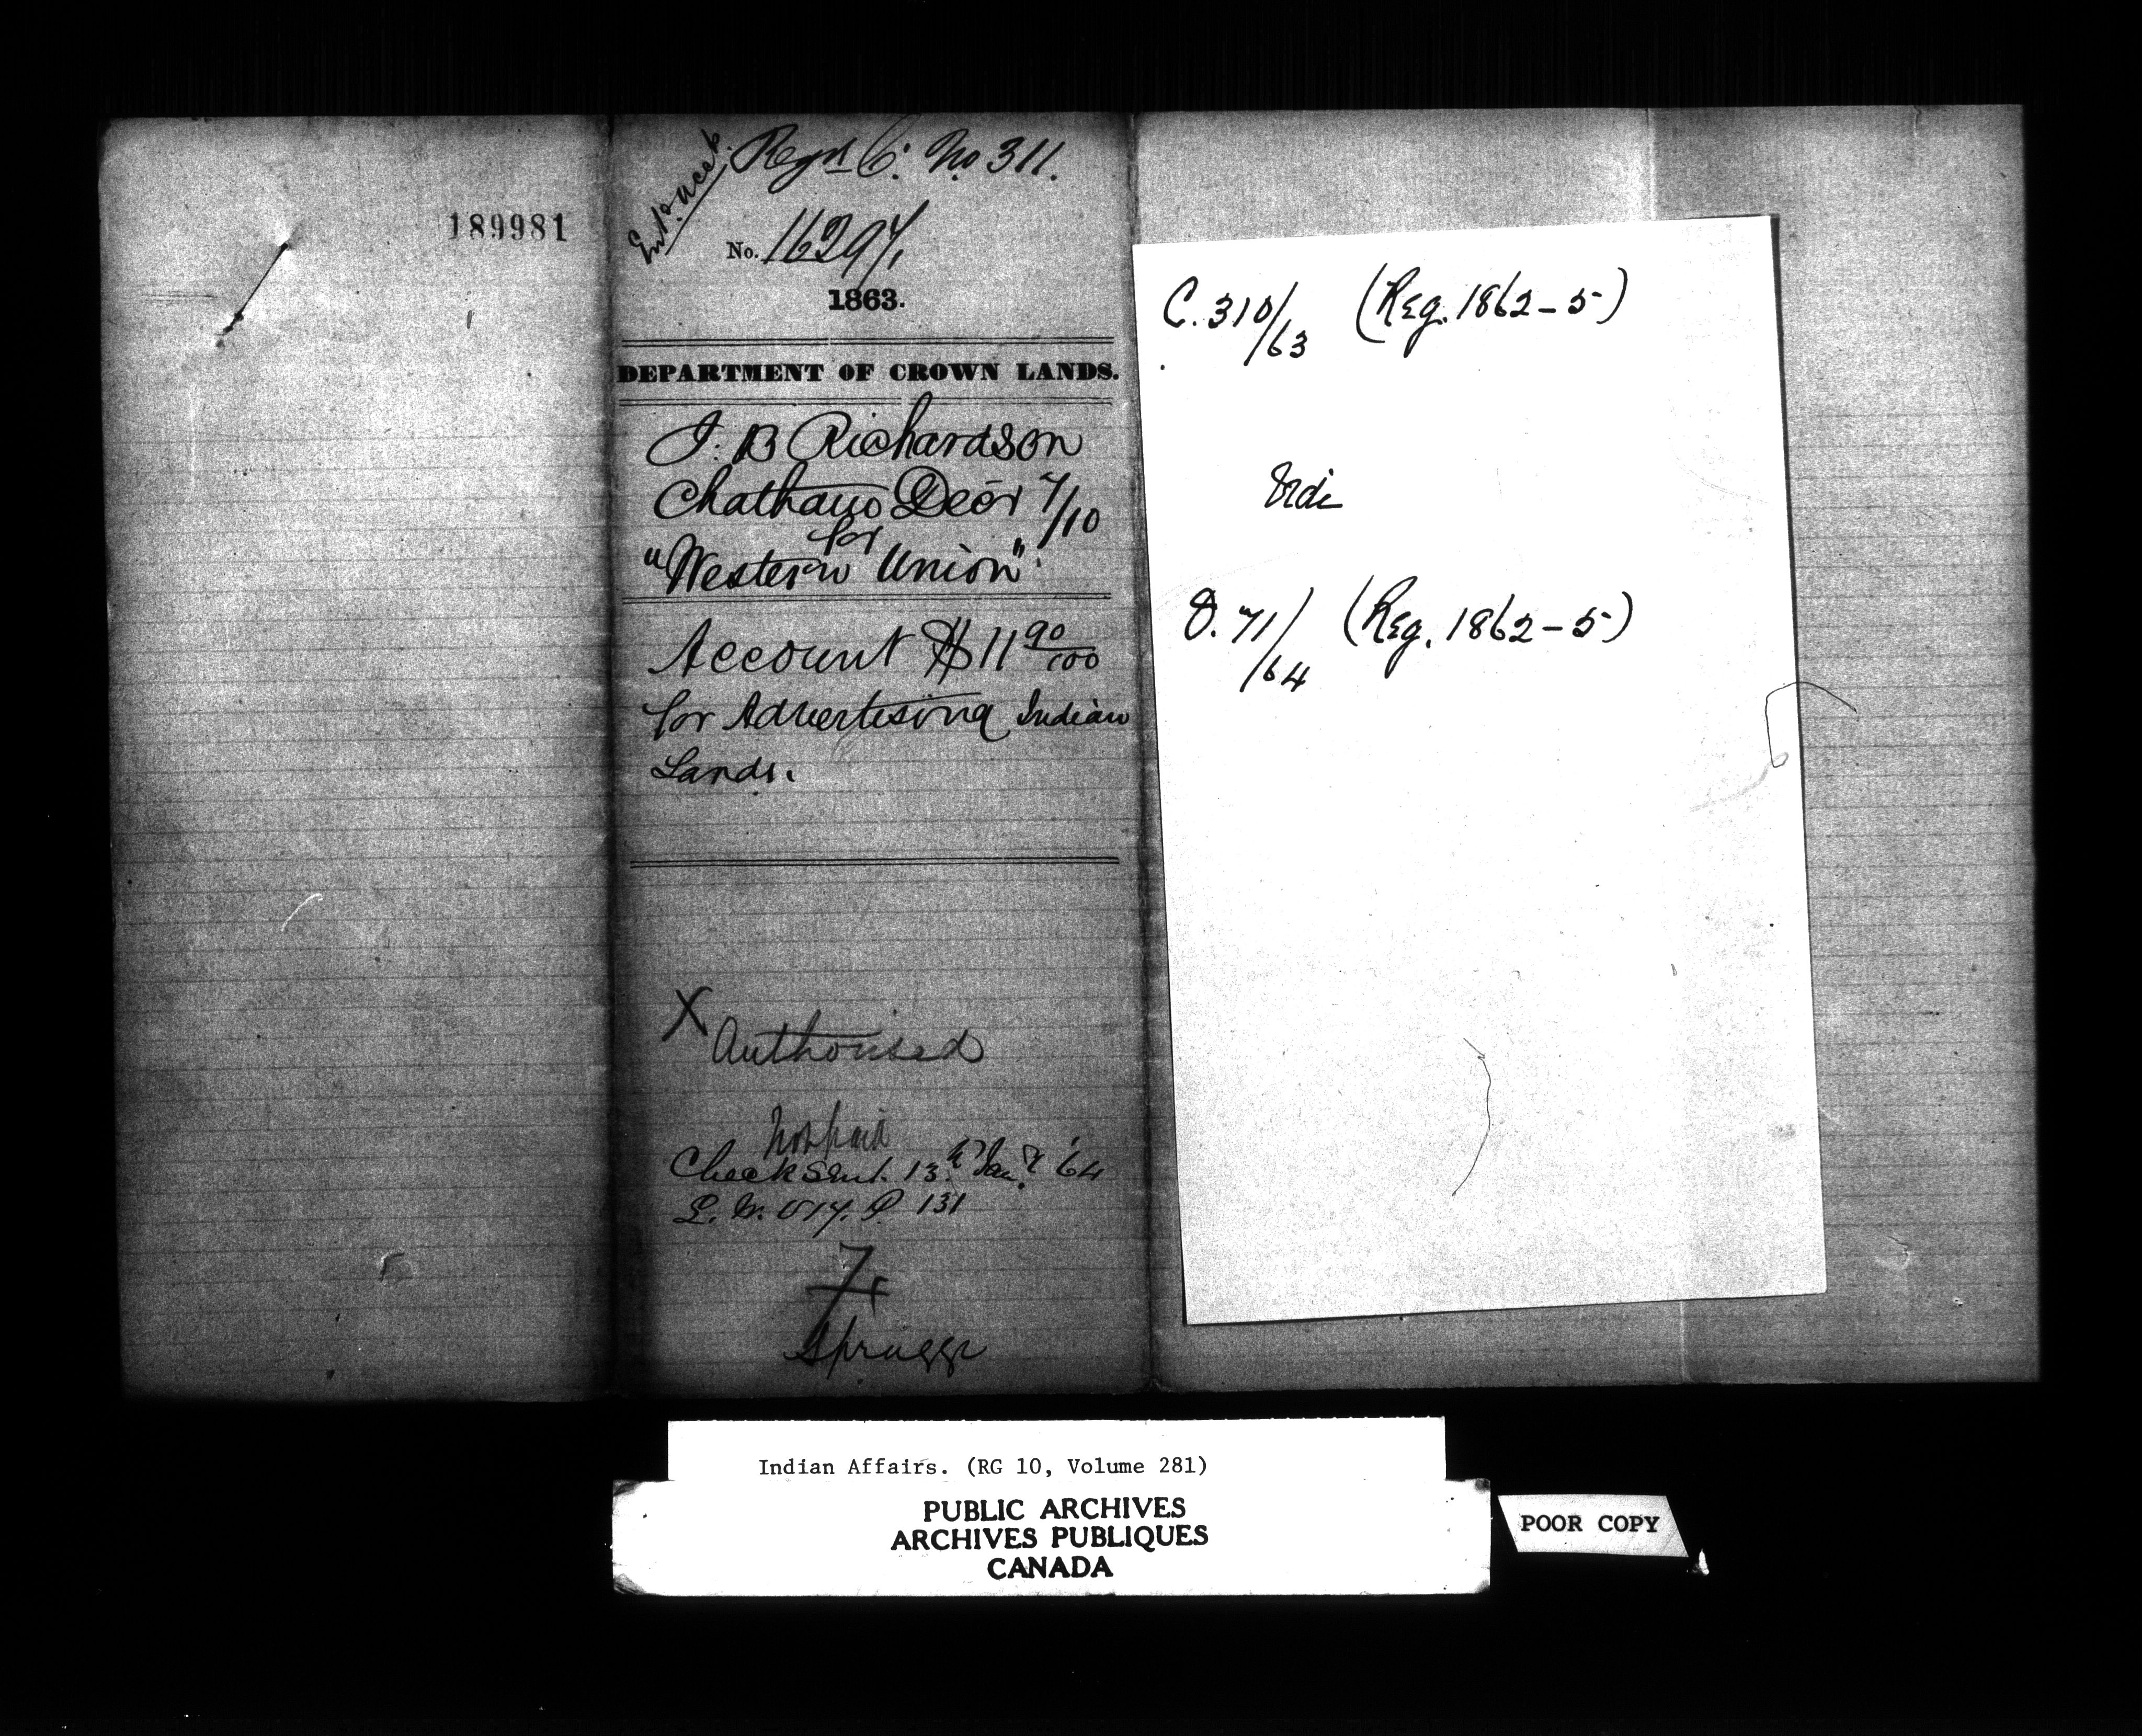 189981
Regd C. No 311.
No. 16294/1
1863.
DEPARTMENT OF CROWN LANDS.
J. B Richardson
Chatham Decr 7/10
for
"Western Union".
Account $11 90/100
for Advertising Indian
Lands.
X
Authorised
Not paid
Check sent. 13th Jany '64
P 131
Spragge
C. 310/63 (Reg. 1862-5)
Vide
71/64 (Reg. 1862-5)
Indian Affairs. (RG 10, Volume 281)
PUBLIC ARCHIVES
ARCHIVES PUBLIQUES
CANADA
POOR COPY